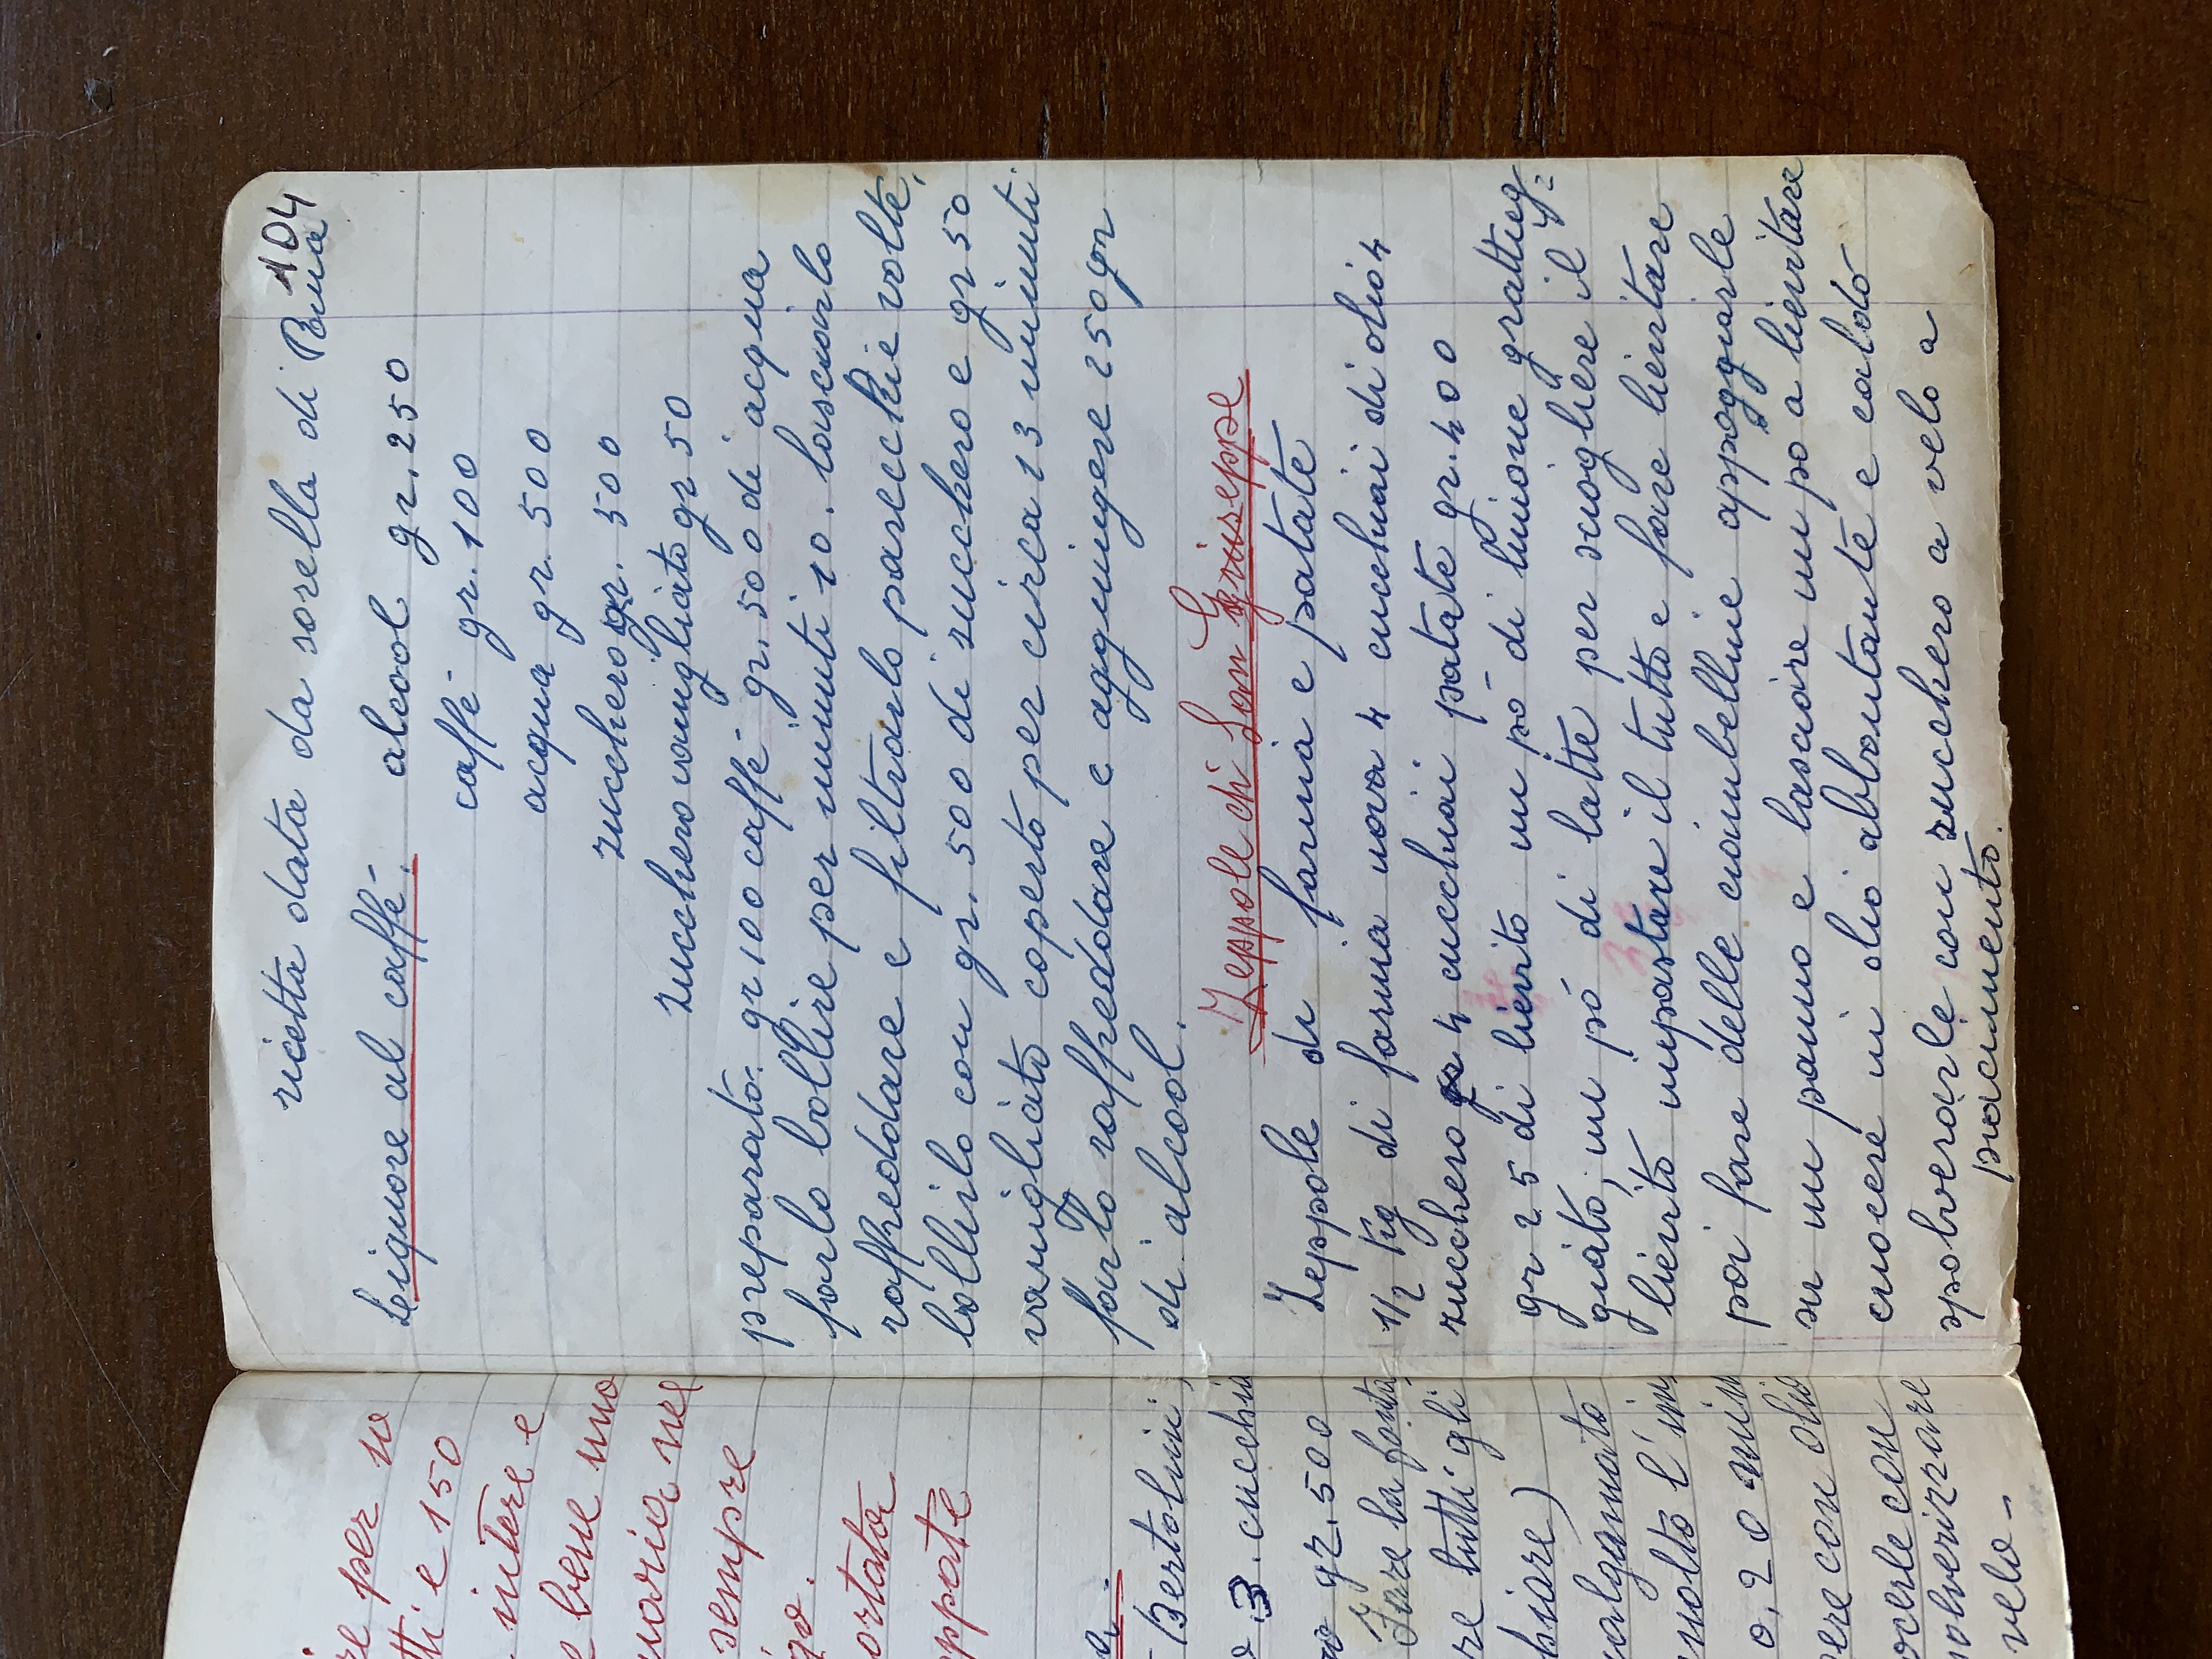 re per so
tti e 150
intere e
e bene uno
uoria nel
sempre
go.
ortata
oppate
a.
Bertolini,
o 3. cucchia
ro gr. 500
Fare la fonta
re tutti gli
chiare)
malgamato
molto l'im
o, 20 min
ere con olio
ocerle con
polverizzare
velo -
104
ricetta data da sorella di
Liquore al caffé. alcool gr. 250
caffé gr. 100
acqua gr. 500
zucchero gr. 500
zucchero vanigliato gr 50
preparato: gr 100 caffé gr. 500 di acqua
farlo bollire per minuti 10. lasciarlo
raffreddare e filtrarlo parecchie volte,
bollirlo con gr. 500 di zucchero e gr 50
vanigliato coperto per circa 13 minuti
farlo raffreddare e aggiungere 250 gr
di alcool.
Zeppole di San Giuseppe
Zeppole di farina e patate
1/2 Kg di farina uova 4 cucchiai di olio 4
zucchero gr 4 cucchiai patate gr. 400
gr 25 di lievito un pó di limone grattug=
giato, un pó di latte per sciogliere il
lievito impastare il tutto e fare lievitare
poi fare delle ciambelline appoggiarle
su un panno e lasciare un po a lievitare
cuocere in olio abbontante e caldo
spolverarle con zucchero a velo a
piacimento.